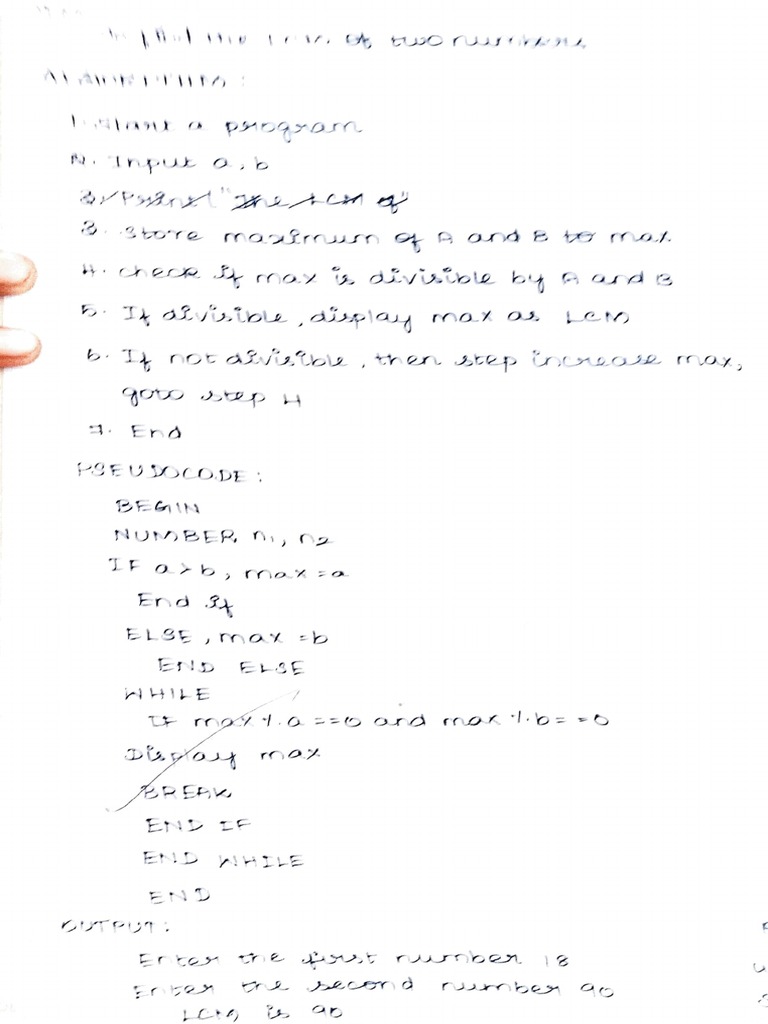 To find the LCM of two numbers
ALGORITHM:
1. Start a program
2. Input a, b
3. Print "The LCM of"
3. Store maximum of A and B to max.
4. check if max is divisible by A and B
5. If divisible, display max as LCM
6. If not divisible, then step increase max,
goto step 4
7. End
PSEUDOCODE:
BEGIN
NUMBER n1, n2
IF a > b, max = a
End if
ELSE, max = b
END ELSE
WHILE
IF max % a == 0 and max % b == 0
Display max
BREAK
END IF
END WHILE
END
OUTPUT:
Enter the first number 18
Enter the second number 90
LCM is 90